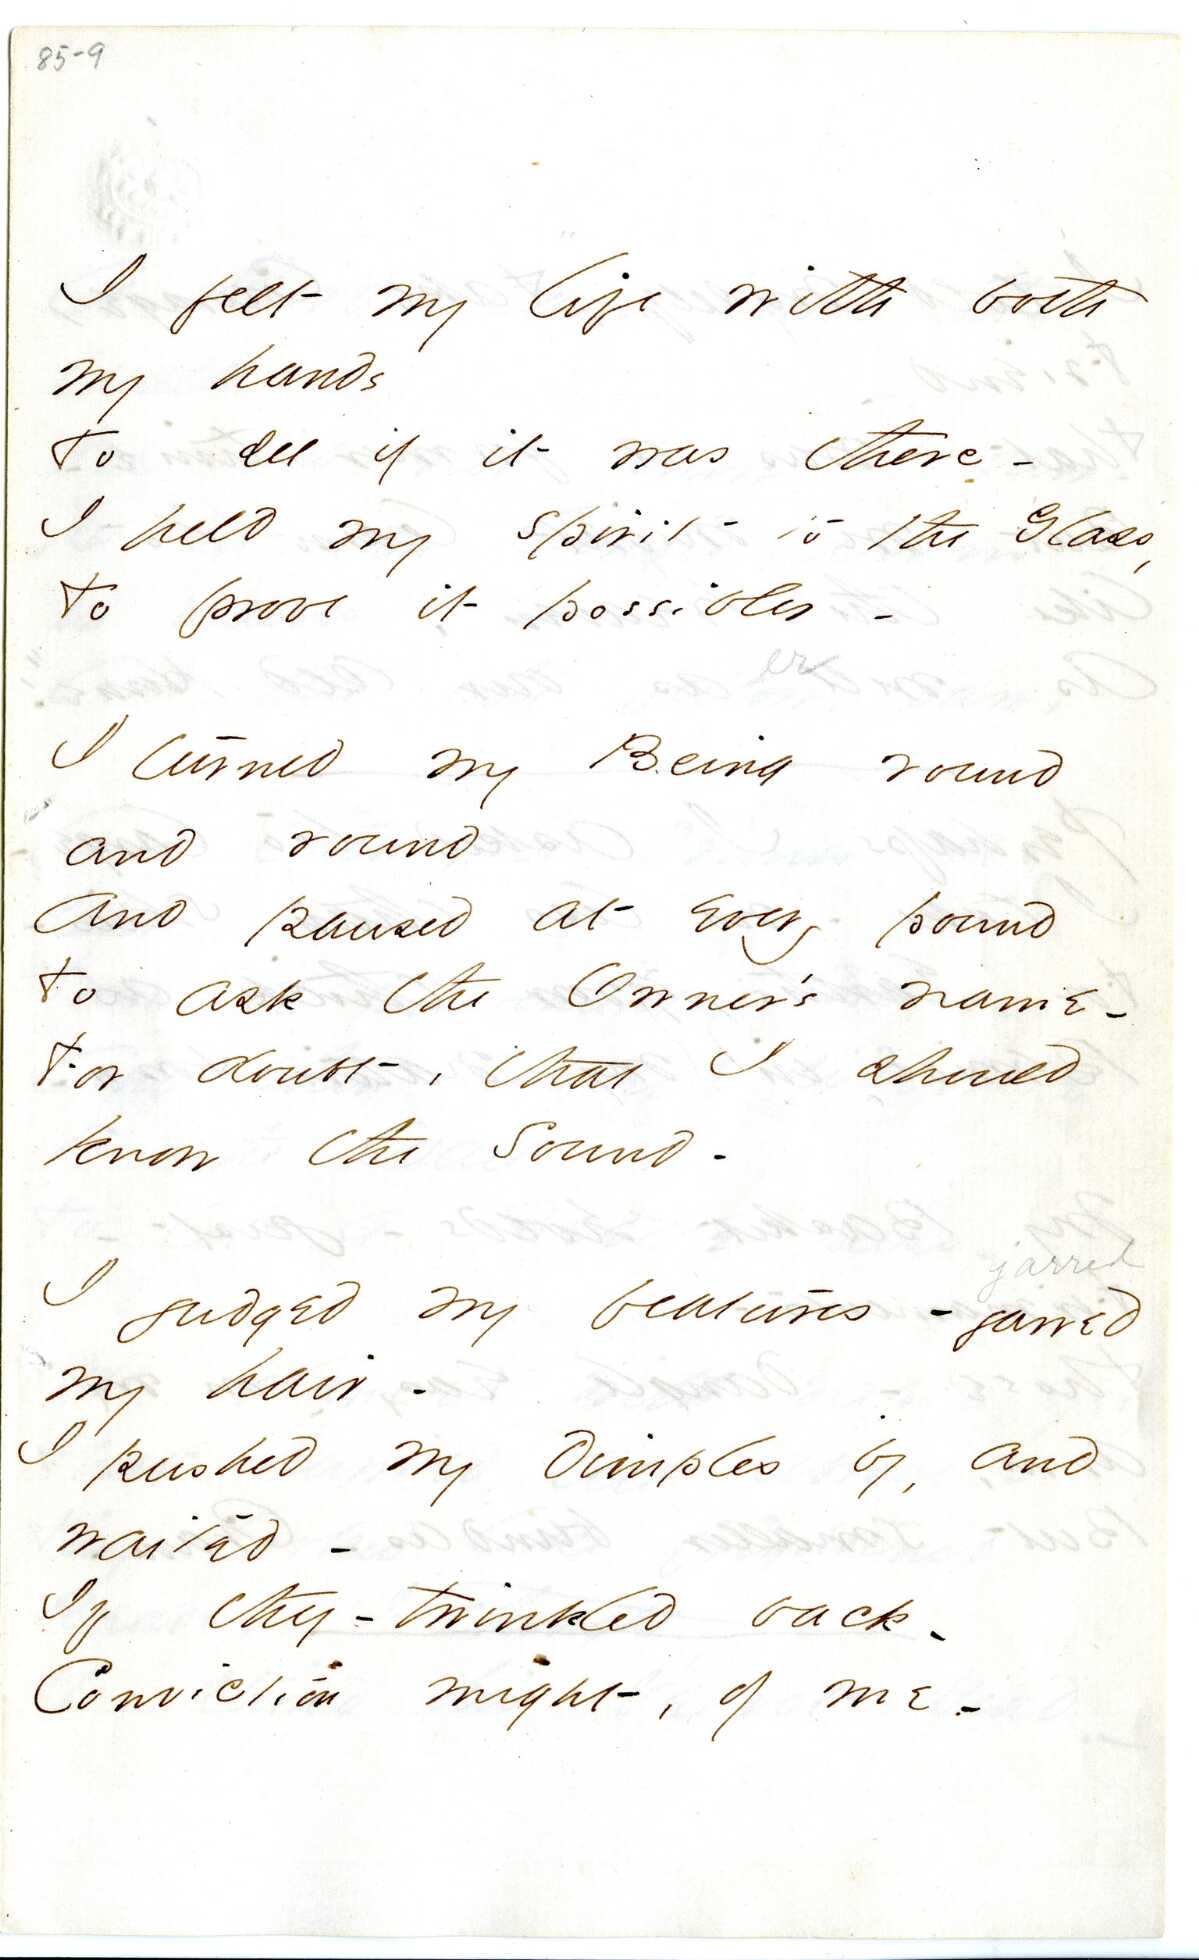 85-9
I felt my life with both
my hands
To see if it was there -
I held my spirit to the Glass,
To prove it possibler -
er
I turned my Being round
and round
And paused at Every pound
To ask the Owner's name -
For doubt, that I should
know the Sound -
jarred
I judged my features - jarred
my hair -
I pushed my dimples by, and
waited -
If they - twinkled back -
Conviction might, of me -